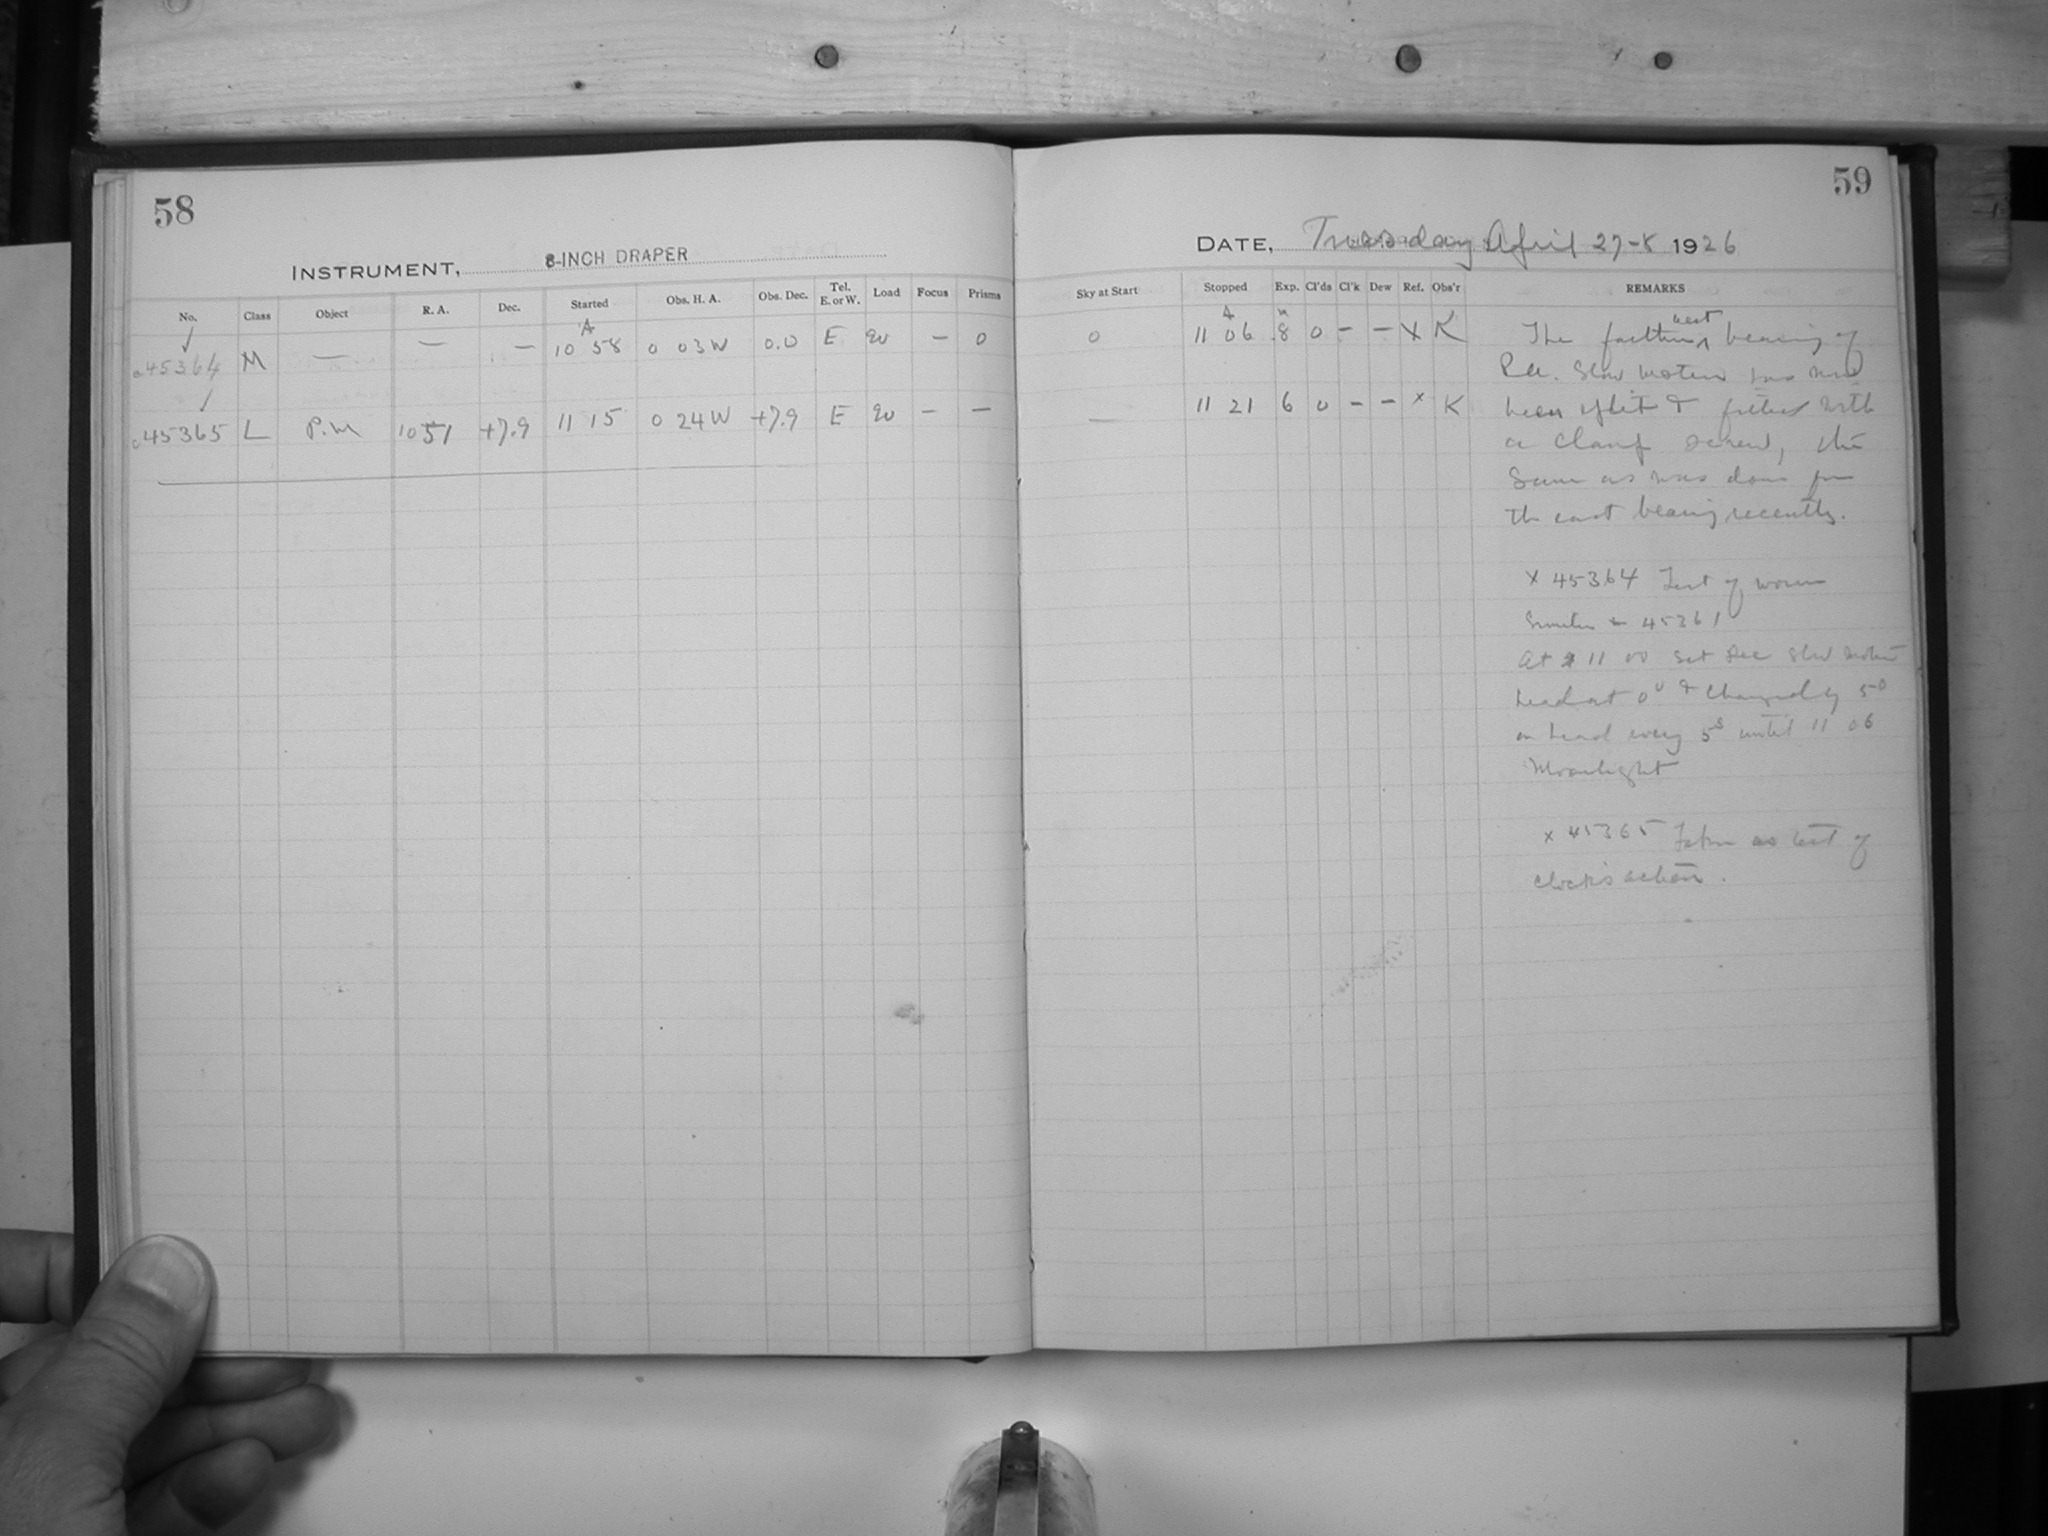 58
INSTRUMENT, 8-INCH DRAPER
No. Class Object R. A. Dec. Started Obs. H. A. Obs. Dec. Tel. E. or W. Load Focus Prisms
A
45364 M — — — 10 58 0 03 W 0.0 E — 0
45365 L P.M 10 51 +7.9 11 15 0 24 W +7.9 E — —
59
DATE, Tuesday April 27-8 1926
Sky at Start Stopped Exp. Cl'ds Cl'k Dew Ref. Obs'r REMARKS
A m
0 11 06 8 0 — — X K
— 11 21 6 0 — — x K
The farthest west bearing of
Dec. Slow motion has now
been split & fitted with
a clamp screw, the
same as was done for
the east bearing recently.
x 45364 Test of worm
Similar to 45361
At 11 00 set Dec slow motion
head at 0° & changed by 5°
on head every 5s until 11 06
Moonlight
x 45365 Taken as test of
clock's action.